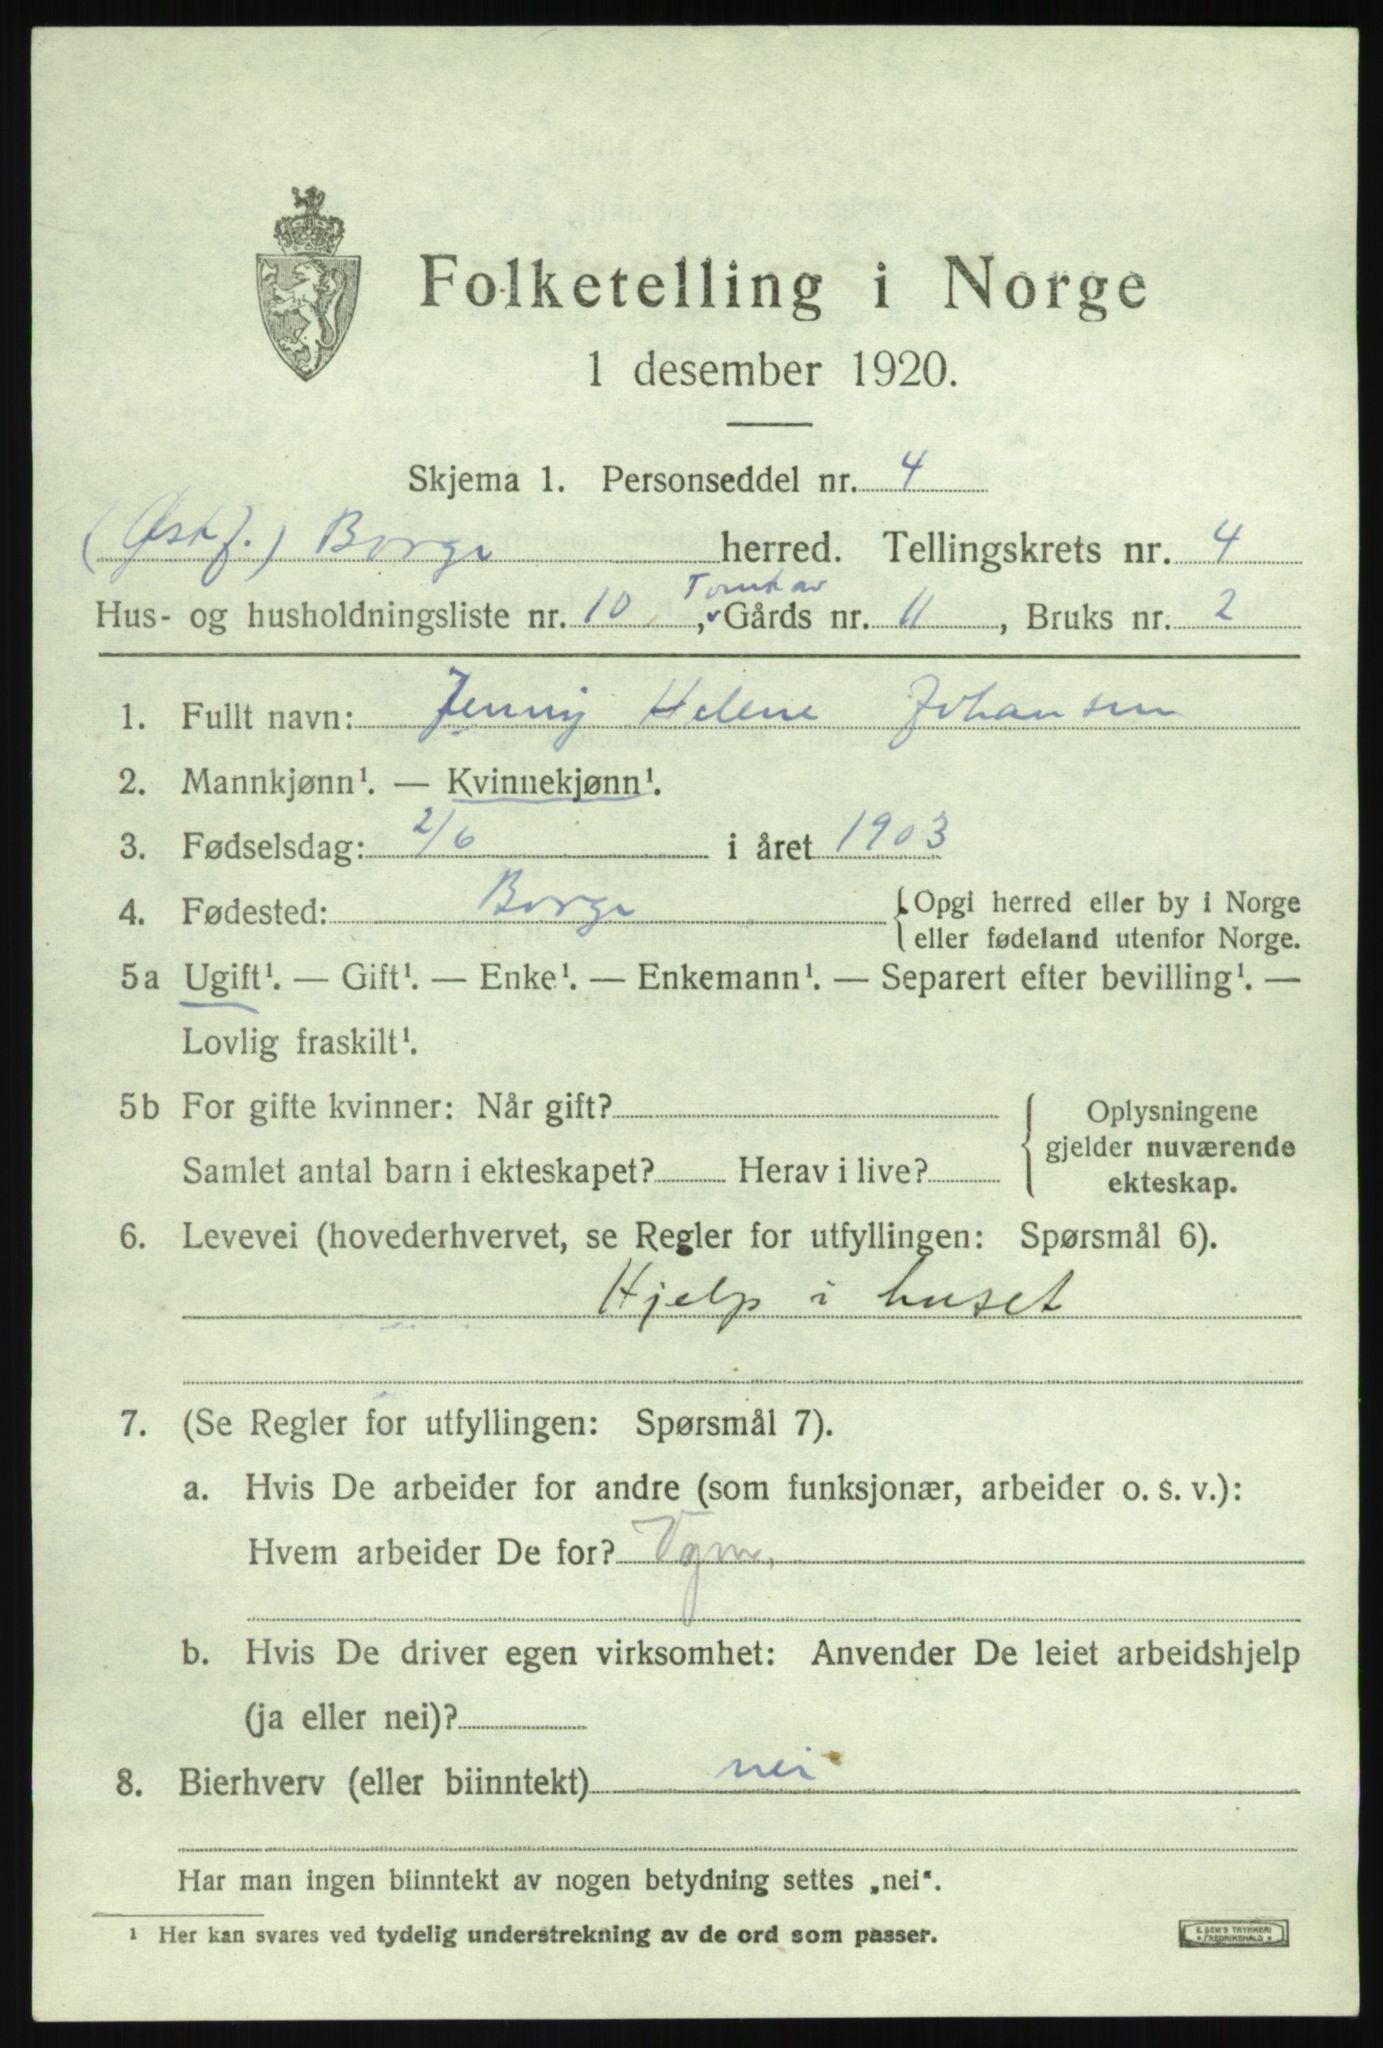 Folketelling i Norge
1 desember 1920.
Skjema 1. Personseddel nr. 4
(Østf.) Borge herred. Tellingskrets nr. 4
Hus- og husholdningsliste nr. 10, Gårds nr. 11, Bruks nr. 2
1. Fullt navn: Jenny Helene Johansen
2. Mannkjønn¹. — Kvinnekjønn¹.
3. Fødselsdag: 2/6 i året 1903
4. Fødested: Borge { Opgi herred eller by i Norge
eller fødeland utenfor Norge.
5a Ugift¹. — Gift¹. — Enke¹. — Enkemann¹. — Separert efter bevilling¹. —
Lovlig fraskilt¹.
5b For gifte kvinner: Når gift?
Samlet antal barn i ekteskapet? Herav i live?
{ Oplysningene
gjelder nuværende
ekteskap.
6. Levevei (hovederhvervet, se Regler for utfyllingen: Spørsmål 6).
Hjelp i huset
7. (Se Regler for utfyllingen: Spørsmål 7).
a. Hvis De arbeider for andre (som funksjonær, arbeider o. s. v.):
Hvem arbeider De for?
b. Hvis De driver egen virksomhet: Anvender De leiet arbeidshjelp
(ja eller nei)?
8. Bierhverv (eller biinntekt) nei
Har man ingen biinntekt av nogen betydning settes „nei“.
¹ Her kan svares ved tydelig understrekning av de ord som passer.
E. SEM'S TRYKKERI
* FREDRIKSHALD *